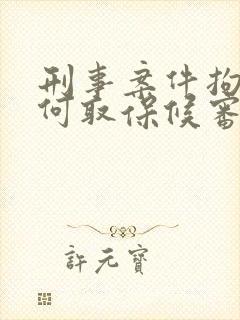 刑事案件拘
何取保候審
許元寶